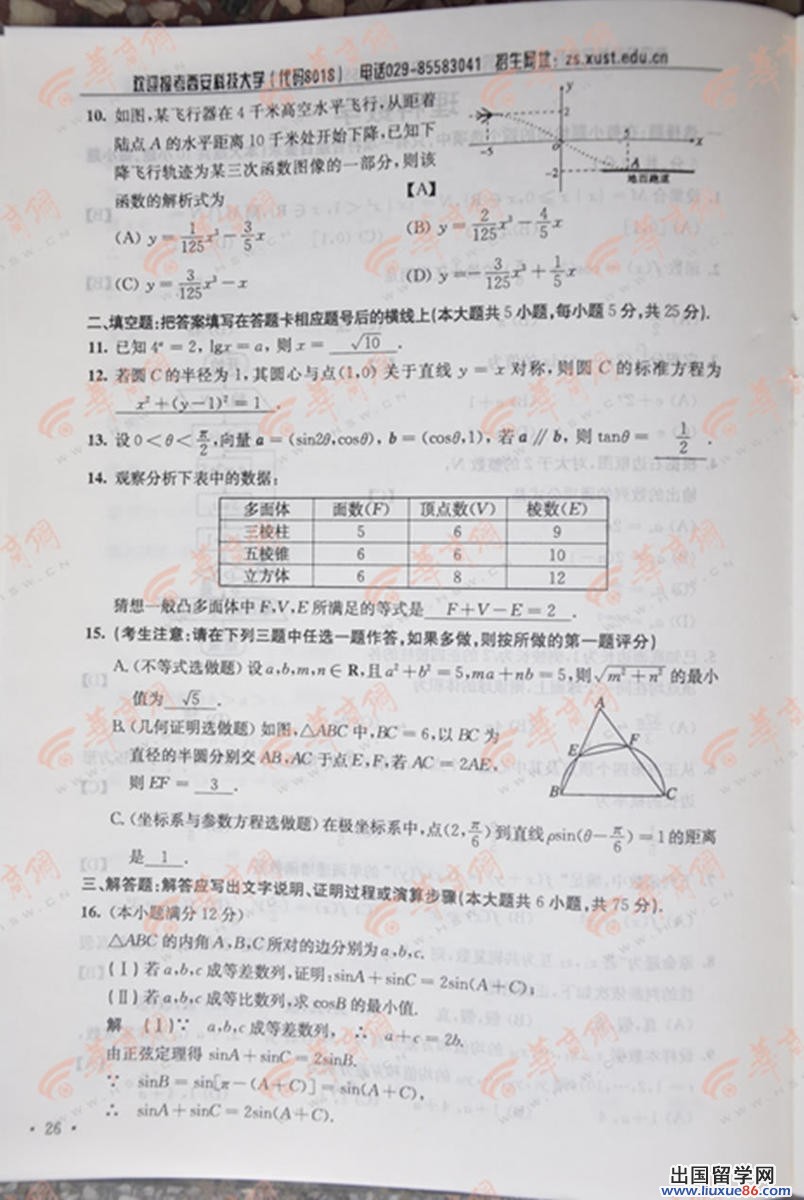 欢迎报考西安科技大学(代码8018) 电话029-85583041 招生网址: zs.xust.edu.cn
10. 如图,某飞行器在4千米高空水平飞行,从距着
陆点A的水平距离10千米处开始下降,已知下
降飞行轨迹为某三次函数图像的一部分,则该
函数的解析式为 【A】
y
2
-5
O
5
x
-2
A
地面跑道
(A) y=1/125x³-3/5x (B) y=2/125x³-4/5x
(C) y=3/125x³-x (D) y=-3/125x³+1/5x
二、填空题:把答案填写在答题卡相应题号后的横线上(本大题共5小题,每小题5分,共25分).
11. 已知4ᵃ=2, lgx=a, 则x= √10 .
12. 若圆C的半径为1,其圆心与点(1,0)关于直线y=x对称,则圆C的标准方程为
x²+(y-1)²=1 .
13. 设0<θ<π/2,向量a=(sin2θ,cosθ), b=(cosθ,1), 若a∥b, 则tanθ= 1/2 .
14. 观察分析下表中的数据:
多面体 面数(F) 顶点数(V) 棱数(E)
三棱柱 5 6 9
五棱锥 6 6 10
立方体 6 8 12
猜想一般凸多面体中F,V,E所满足的等式是 F+V-E=2 .
15. (考生注意:请在下列三题中任选一题作答,如果多做,则按所做的第一题评分)
A. (不等式选做题)设a,b,m,n∈R,且a²+b²=5,ma+nb=5,则√(m²+n²)的最小
值为 √5 .
B. (几何证明选做题)如图,△ABC中,BC=6,以BC为
直径的半圆分别交AB,AC于点E,F,若AC=2AE,
则EF= 3 .
A
E
F
B
C
C. (坐标系与参数方程选做题)在极坐标系中,点(2,π/6)到直线ρsin(θ-π/6)=1的距离
是 1 .
三、解答题:解答应写出文字说明、证明过程或演算步骤(本大题共6小题,共75分).
16. (本小题满分12分)
△ABC的内角A,B,C所对的边分别为a,b,c.
(Ⅰ)若a,b,c成等差数列,证明:sinA+sinC=2sin(A+C);
(Ⅱ)若a,b,c成等比数列,求cosB的最小值.
解 (Ⅰ)∵ a,b,c成等差数列, ∴ a+c=2b.
由正弦定理得sinA+sinC=2sinB.
∵ sinB=sin[π-(A+C)]=sin(A+C),
∴ sinA+sinC=2sin(A+C).
· 26 ·
华商网
WWW.HSW.CN
出国留学网
www.liuxue86.com